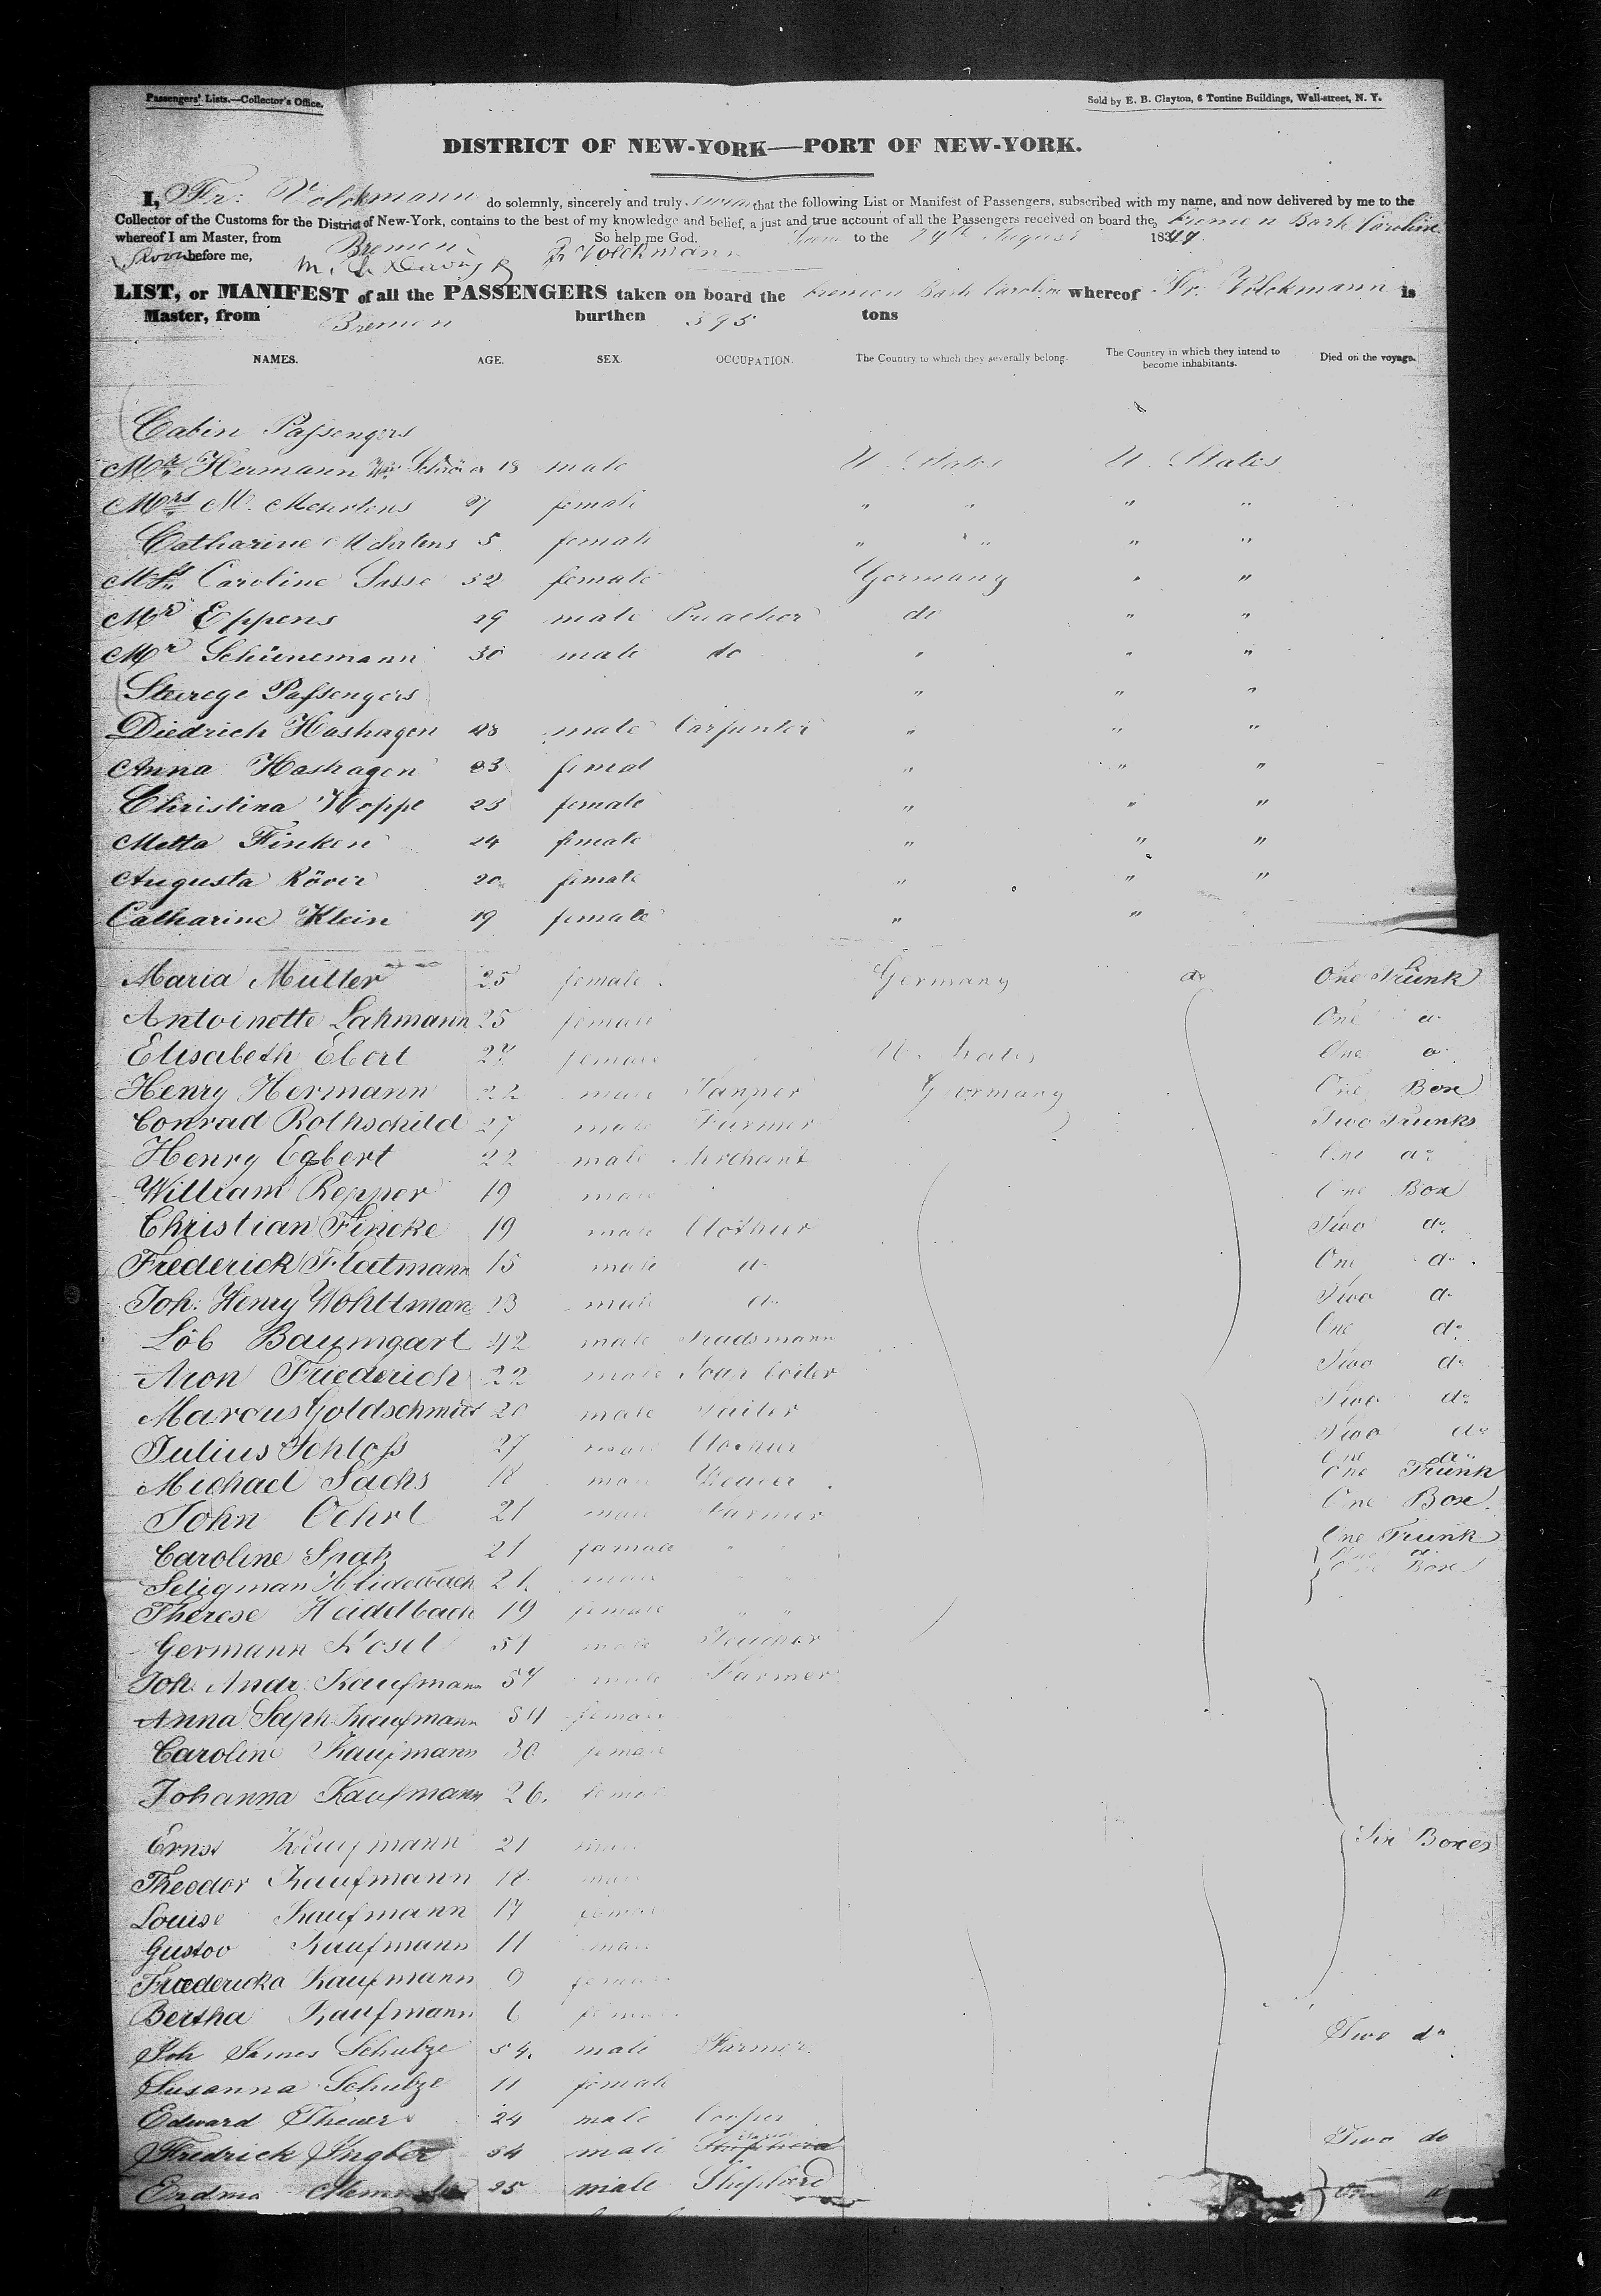 Passengers' Lists.—Collector's Office.
Sold by E. B. Clayton, 6 Tontine Buildings, Wall-street, N. Y.
DISTRICT OF NEW-YORK—PORT OF NEW-YORK.
I, Fr: Volckmann do solemnly, sincerely and truly swear that the following List or Manifest of Passengers, subscribed with my name, and now delivered by me to the
Collector of the Customs for the District of New-York, contains to the best of my knowledge and belief, a just and true account of all the Passengers received on board the Bremen Bark Caroline
whereof I am Master, from Bremen So help me God. to the 24th August 1844.
Sworn before me, Fr Volckmann
LIST, or MANIFEST of all the PASSENGERS taken on board the Bremen Bark Caroline whereof Fr. Volckmann is
Master, from Bremen burthen 395 tons
NAMES. AGE. SEX. OCCUPATION. The Country to which they severally belong. The Country in which they intend to become inhabitants. Died on the voyage.
Cabin Passengers
Mr Hermann Wm 18 male U. States U. States
Mrs M. Mehrtens 27 female " " " "
Catharine Mehrtens 5 female " " " "
Caroline Sasse 32 female Germany " "
Mr Eppens 29 male Preacher do " "
Mr Schünemann 30 male do " " "
Steerege Passengers " " "
Diedrich Hashagen 28 male Carpenter " " "
Anna Hashagen 23 femal " " "
Christina Hoppe 23 female " " "
Metta Finken 24 female " " "
Augusta Röver 20 female " " "
Catharine Klein 19 female " "
Maria Müller 25 female Germany do One Trunk
Antoinette Lahmann 25 female One do
Elisabeth Ebert 27 female U. States One do
Henry Hermann 22 male Tanner Germany One Box
Conrad Rothschild 27 male Farmer Two Trunks
Henry Egbert 22 male Merchant One do
William Repper 19 male One Box
Christian Fincke 19 male Clothier Two do
Frederick Flatmann 15 male do One do
Joh. Henry Wohltman 23 male do Two do
Löb Baumgart 42 male Tradsmann One do
Aron Friederich 22 male Soap boiler Two do
Marcus Goldschmidt 20 male Tailor Two do
Julius Schloss 27 male Clothier Two do
Michael Sachs 18 male Weaver One do
One Trunk
John Oehrl 21 male Farmer One Box
Caroline Spatz 21 famale " " One Trunk
Seligman Heidelbach 21 male " " Box
Therese Heidelbach 19 female " "
Germann Kosel 51 male Teacher
Joh. Andr. Kaufmann 57 male Farmer
Anna Saph Kaufmann 54 female
Caroline Kaufmann 30 female
Johanna Kaufmann 26. female
Ernst Kaufmann 21 male Six Boxes
Theodor Kaufmann 18 male
Louise Kaufmann 17 female
Gustov Kaufmann 11 male
Friedericka Kaufmann 9 female
Bertha Kaufmann 6 female
Joh James Schulze 54. male Farmer Two do
Susanna Schulze 11 female
Edward Theuer 24 male Cooper
Fredrick Ingber 54 male Two do
25 male Shepherd One d